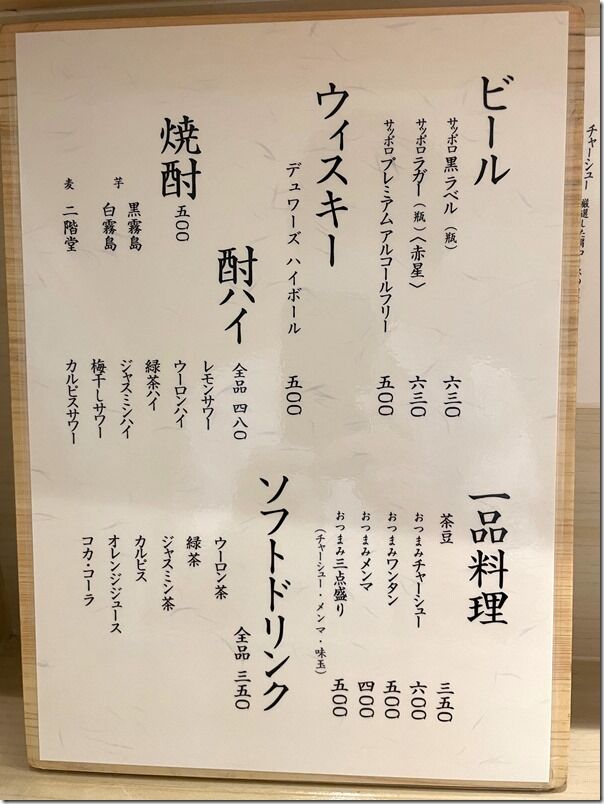 ビール
サッポロ黒ラベル（瓶） 六三〇
サッポロラガー（瓶）〈赤星〉 六三〇
サッポロプレミアムアルコールフリー 五〇〇
ウィスキー
デュワーズ ハイボール 五〇〇
酎ハイ
全品 四八〇
レモンサワー
ウーロンハイ
緑茶ハイ
ジャスミンハイ
梅干しサワー
カルピスサワー
焼酎
五〇〇
芋 黒霧島
白霧島
麦 二階堂
一品料理
茶豆 三五〇
おつまみチャーシュー 六〇〇
おつまみワンタン 五〇〇
おつまみメンマ 四〇〇
おつまみ三点盛り 五〇〇
（チャーシュー・メンマ・味玉）
ソフトドリンク
全品 三五〇
ウーロン茶
緑茶
ジャスミン茶
カルピス
オレンジジュース
コカ・コーラ
チャーシュー